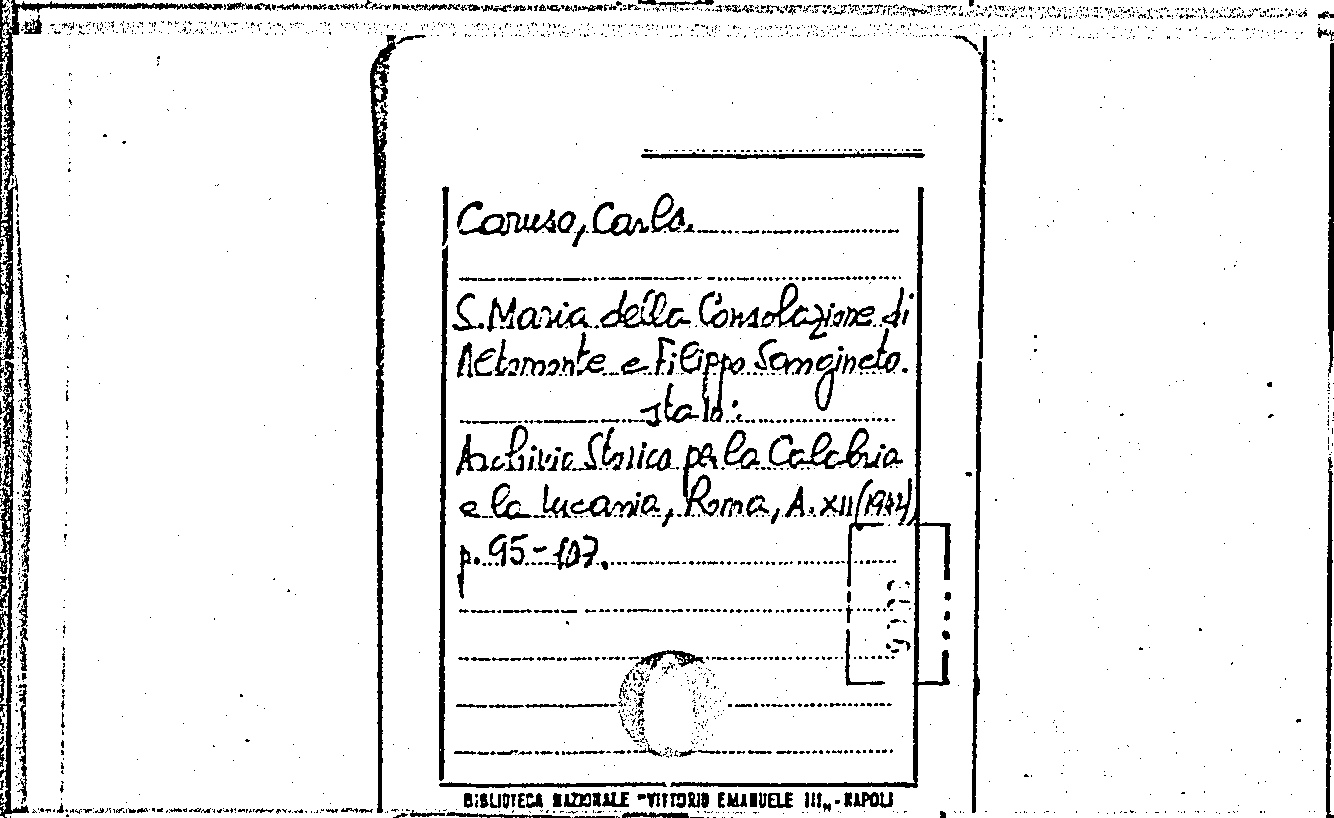 Caruso, Carlo.
S. Maria della Consolazione di
Altomonte e Filippo Sangineto.
sta in:
Archivio Storico per la Calabria
e la Lucania, Roma, A. XII (1942)
p. 95-107.
BIBLIOTECA NAZIONALE "VITTORIO EMANUELE III„ - NAPOLI